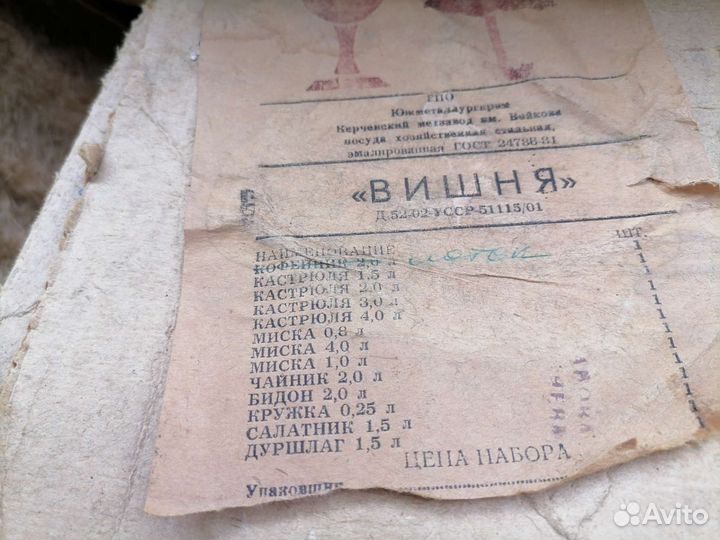 РПО
Южметаллургпром
Керченский метзавод им. Войкова
посуда хозяйственная стальная,
эмалированная ГОСТ 24788-81
«ВИШНЯ»
Д.52-02-УССР-51115/01
НАИМЕНОВАНИЕ ШТ.
КОФЕЙНИК 2,0 л лоток 1
КАСТРЮЛЯ 1.5 л 1
КАСТРЮЛЯ 2.0 л 1
КАСТРЮЛЯ 3,0 л 1
КАСТРЮЛЯ 4,0 л 1
МИСКА 0,8 л 1
МИСКА 4,0 л 1
МИСКА 1,0 л 1
ЧАЙНИК 2,0 л 1
БИДОН 2,0 л 1
КРУЖКА 0,25 л 1
САЛАТНИК 1,5 л 1
ДУРШЛАГ 1,5 л 1
ЦЕНА НАБОРА
Упаковщик
Avito